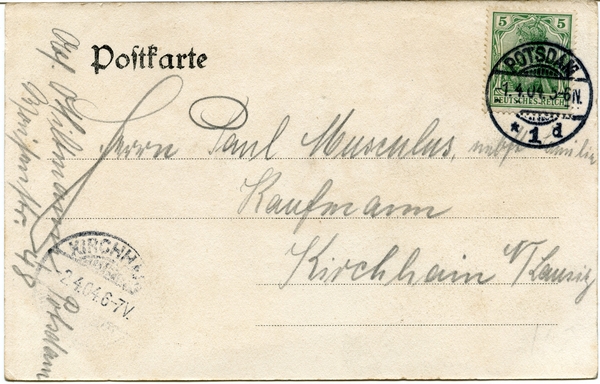 Postkarte
5 5
DEUTSCHES REICH
POTSDAM
1.4.04. 5-6N.
* 1 d
Herrn Paul Musculus, nebst Familie
Kaufmann
Kirchhain N/Lausitz
KIRCHHAIN
2.4.04.6-7V.
Potsdam
48